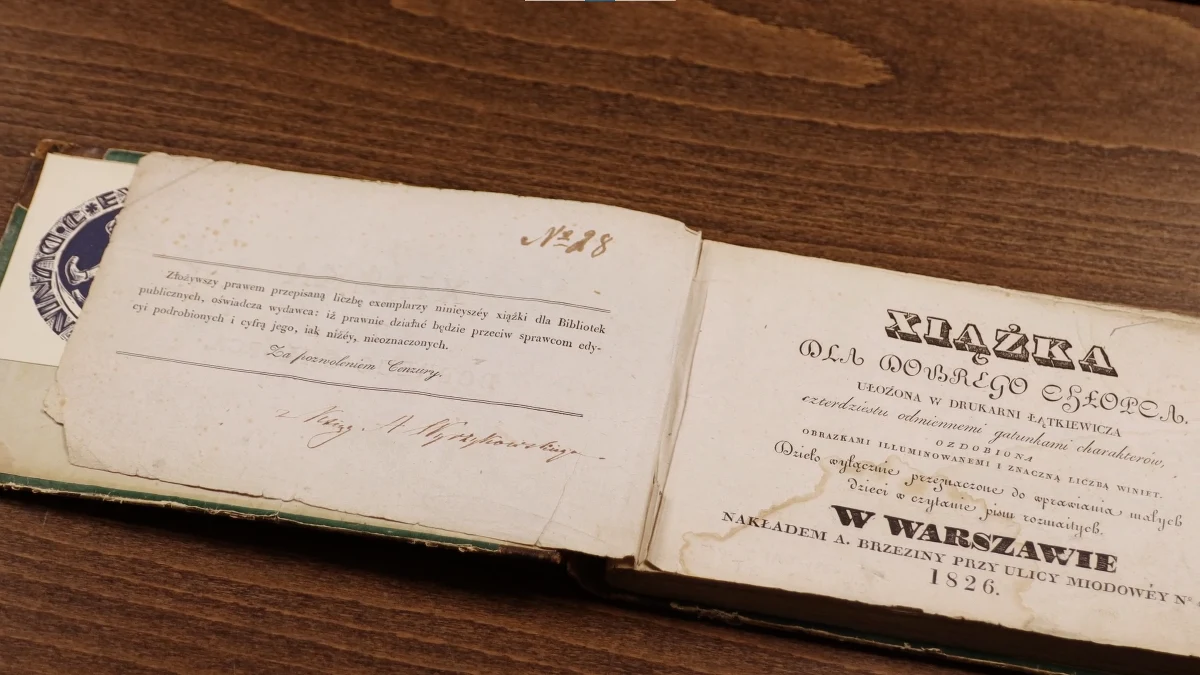 № 28
Złożywszy prawem przepisaną liczbę exemplarzy ninieyszéy xiążki dla Bibliotek
publicznych, oświadcza wydawca: iż prawnie działać będzie przeciw sprawcom edy-
cyi podrobionych i cyfrą jego, iak niżéy, nieoznaczonych.
Za pozwoleniem Cenzury.
z Xiąg A. Wyrzykowskiego
XIĄŻKA
DLA DOBREGO CHŁOPCA.
UŁOŻONA W DRUKARNI ŁĄTKIEWICZA
czterdziestu odmiennemi gatunkami charakterów,
OZDOBIONA
OBRAZKAMI ILLUMINOWANEMI I ZNACZNĄ LICZBĄ WINIET.
Dzieło wyłącznie przeznaczone do wprawiania małych
dzieci w czytanie pism rozmaitych.
W WARSZAWIE
NAKŁADEM A. BRZEZINY PRZY ULICY MIODOWÉY Nº
1826.